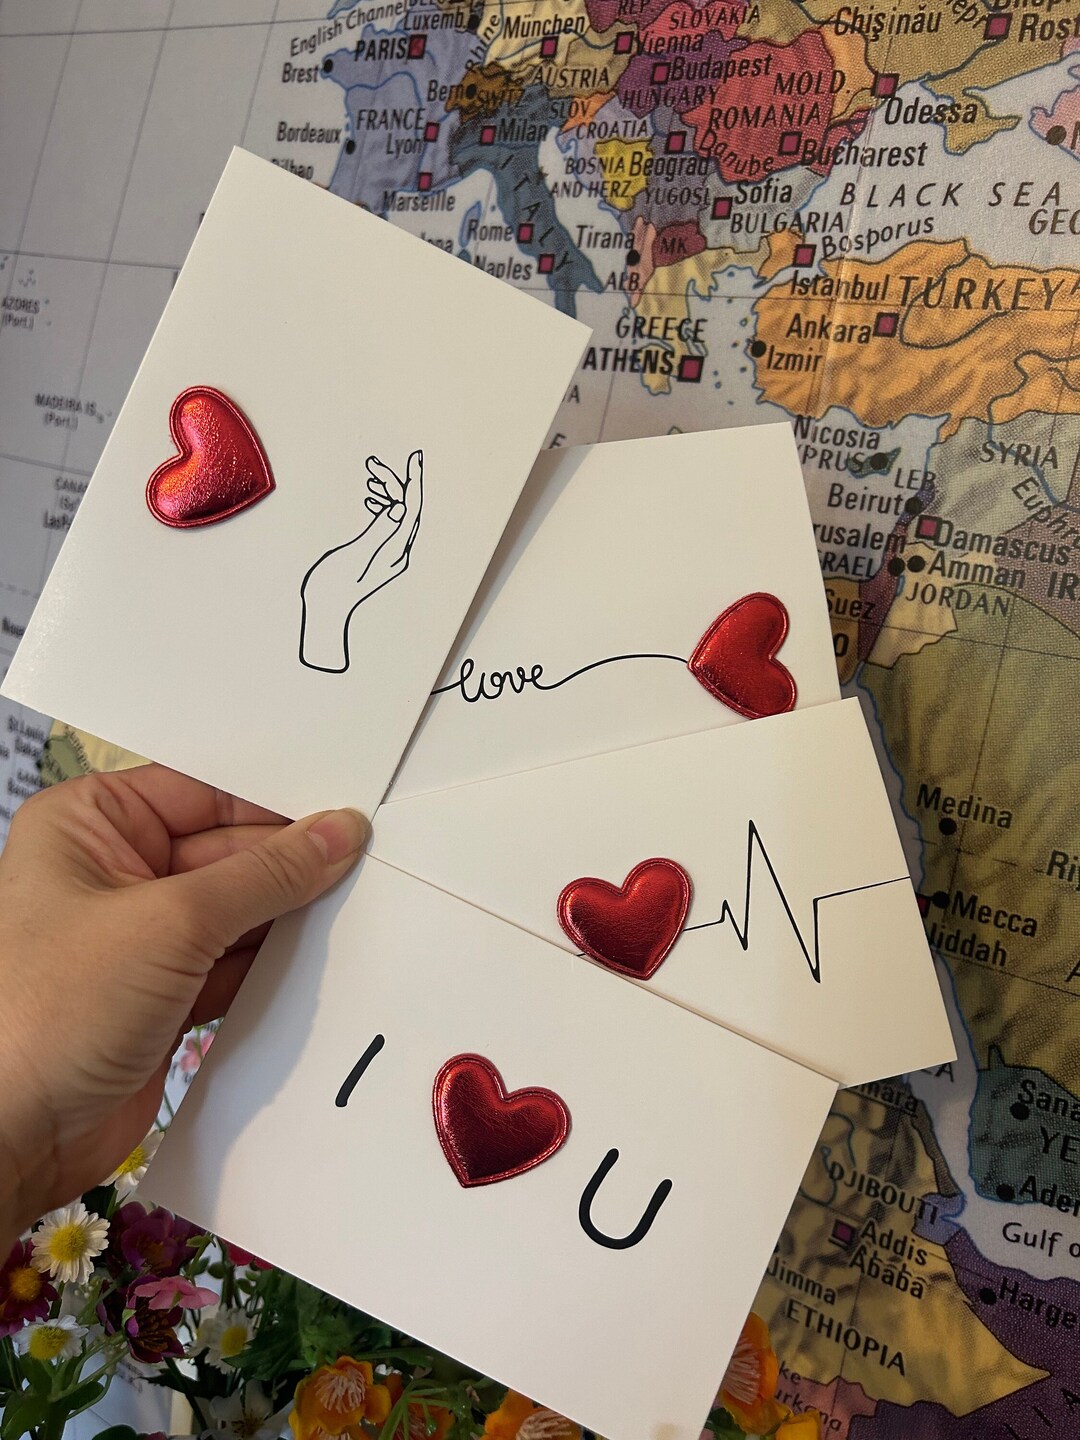 English Channel
Luxemb.
München
REP.
SLOVAKIA
Chişinău
Rost
PARIS
Rhine
Vienna
Brest
AUSTRIA
Budapest
MOLD.
Bern
SWITZ
HUNGARY
Odessa
FRANCE
SLOV.
ROMANIA
Bordeaux
Lyon
Milan
CROATIA
Danube
Bucharest
Bilbao
BOSNIA
AND HERZ.
Beograd
YUGOSL
Sofia
BLACK SEA
Marseille
ITALY
BULGARIA
GEO
Rome
Tirana
MK
Bosporus
Naples
ALB.
Istanbul
TURKEY
AZORES
(Port.)
GREECE
Ankara
ATHENS
Izmir
MADEIRA IS.
(Port.)
Nicosia
YPRUS
SYRIA
CANA
LEB.
Beirut
Euphr
rusalem
Damascus
RAEL
Amman
IR
JORDAN
Suez
O
love
Medina
Riy
Mecca
Jiddah
I U
Sana
YE
DJIBOUTI
Aden
Gulf o
Addis
Ababa
Jimma
Harge
ETHIOPIA